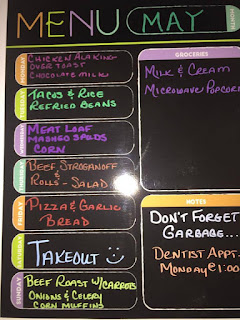 MENU MAY
MONTH
MONDAY
CHICKEN ALAKING
OVER TOAST
CHOCOLATE MILK
TUESDAY
TACOS & RICE
REFRIED BEANS
WEDNESDAY
MEAT LOAF
MASHED SPUDS
CORN
THURSDAY
BEEF STROGANOFF
ROLLS - SALAD
FRIDAY
PIZZA & GARLIC
BREAD
SATURDAY
TAKEOUT
SUNDAY
BEEF ROAST W/CARROTS
ONIONS & CELERY
CORN MUFFINS
GROCERIES
MILK & CREAM
MICROWAVE POPCORN
NOTES
DON'T FORGET
GARBAGE...
DENTIST APPT.
MONDAY @ 1:00